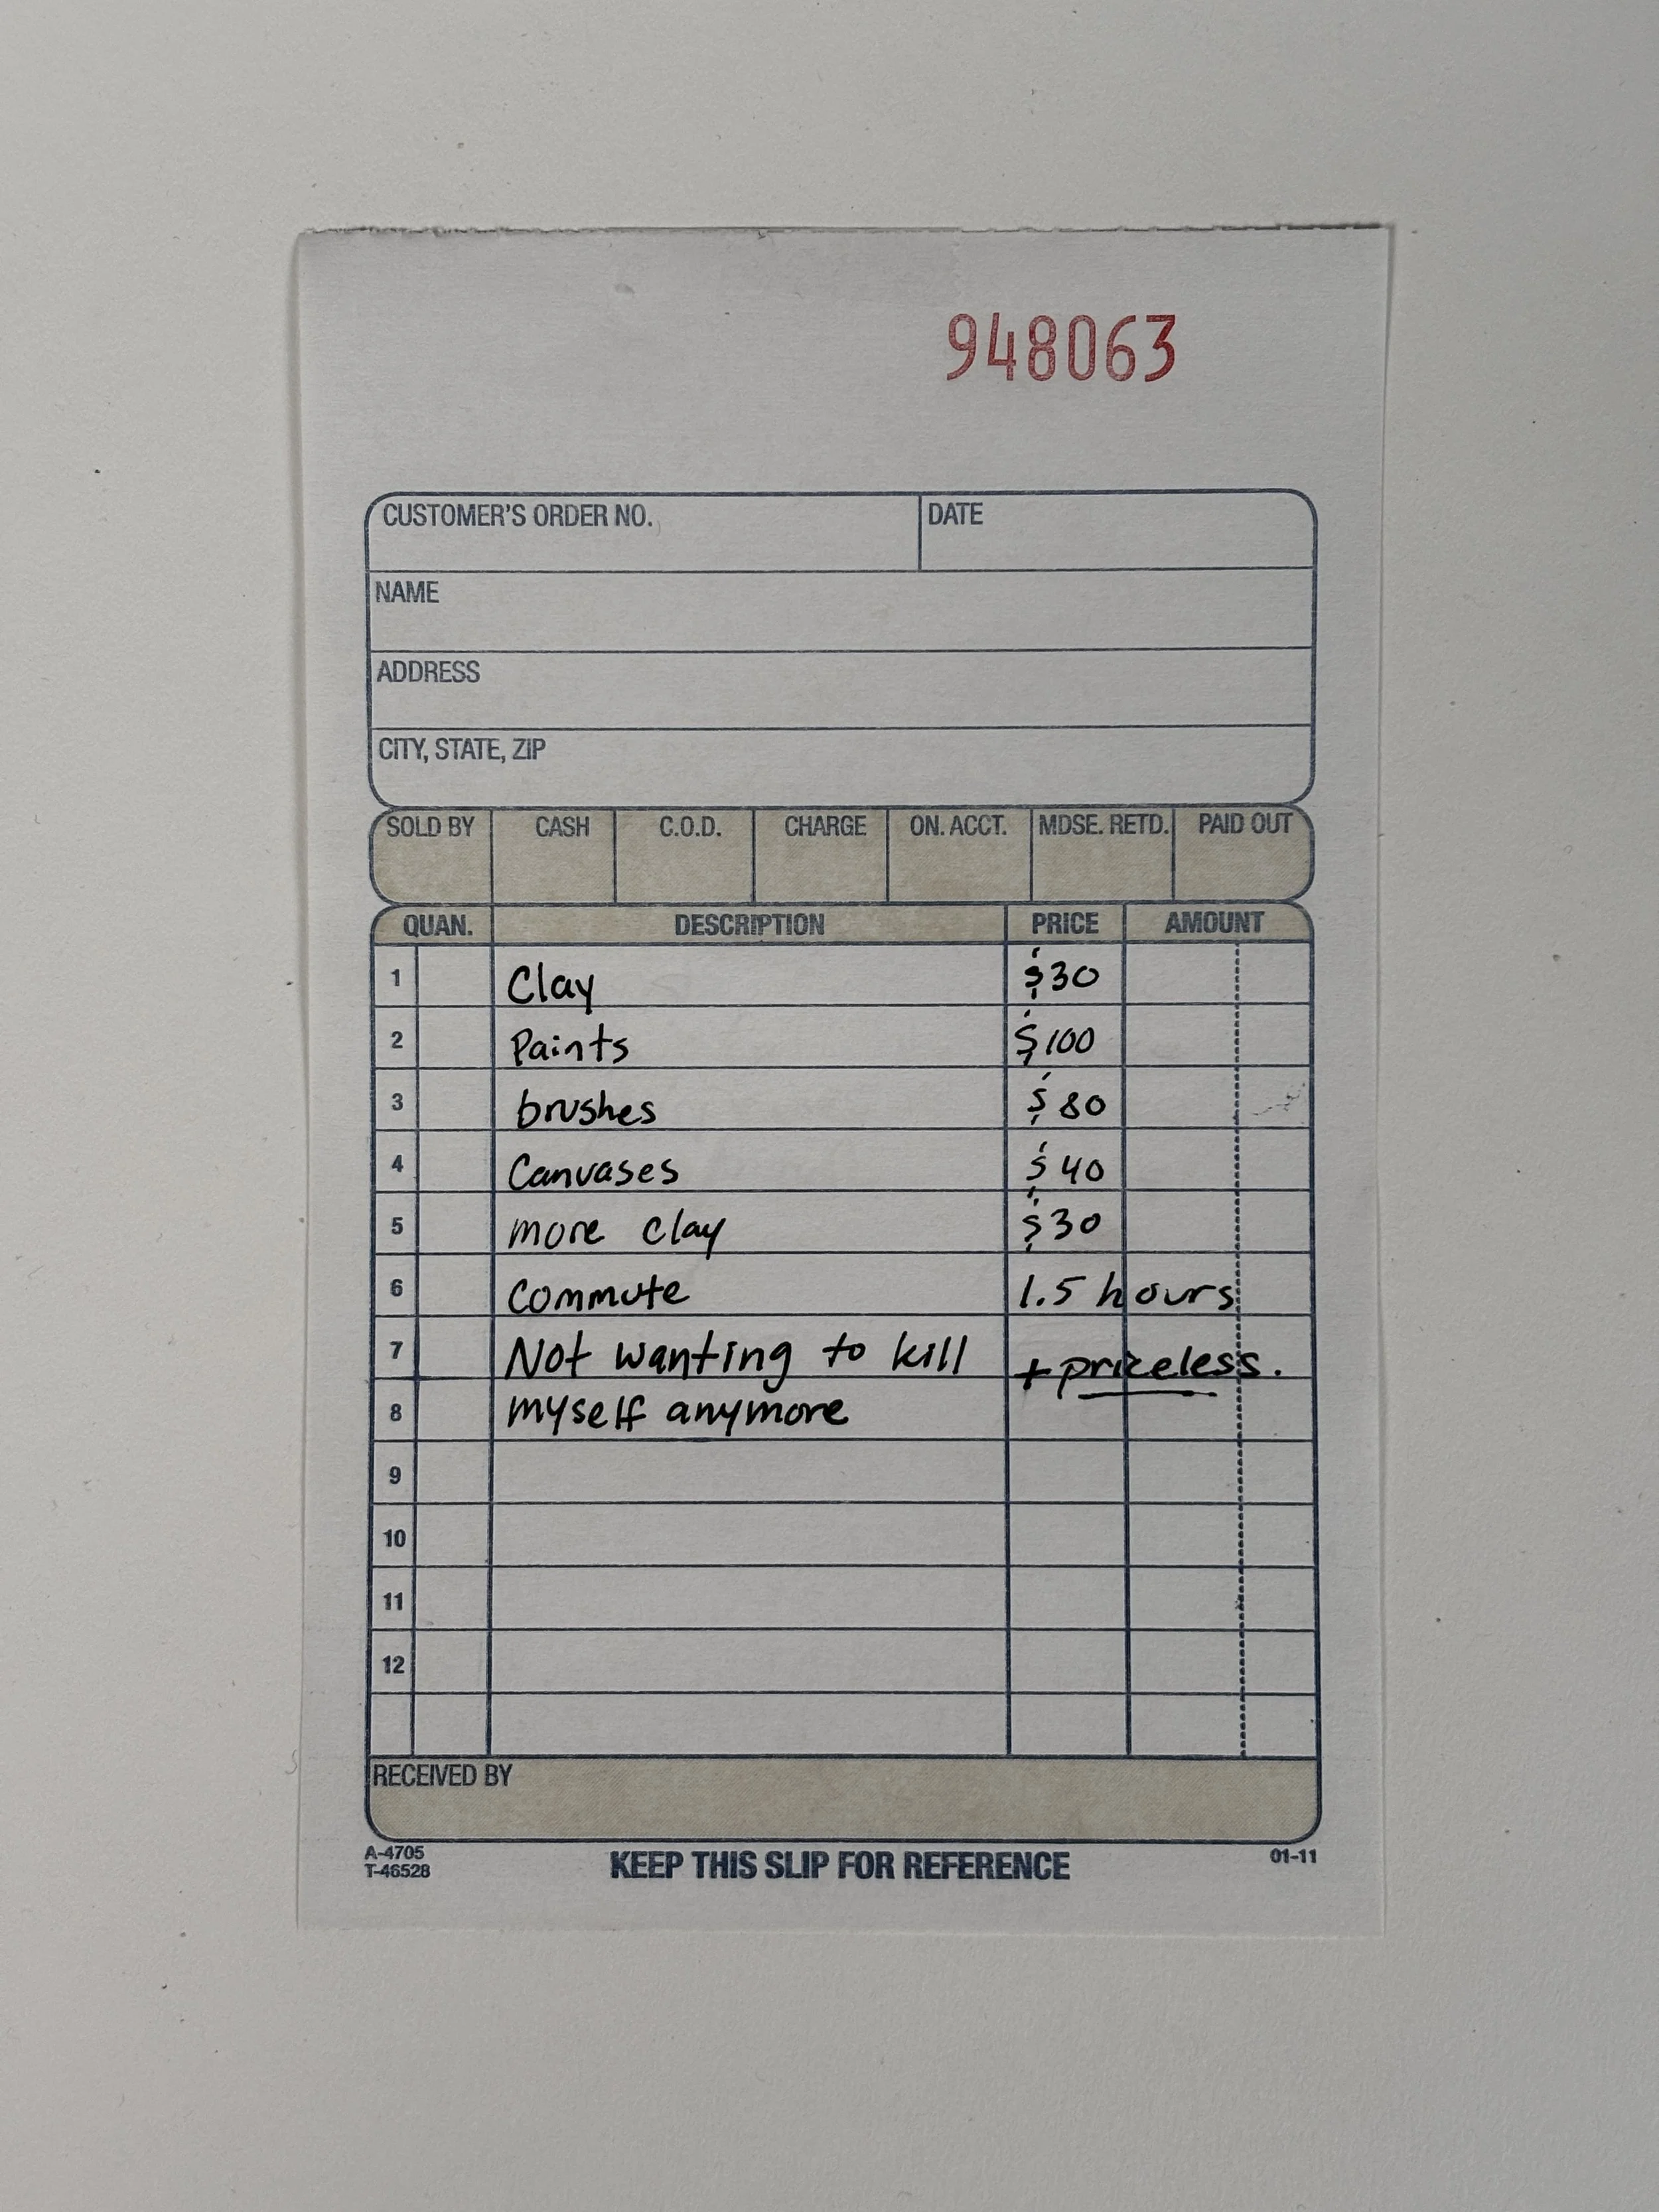 948063
CUSTOMER'S ORDER NO. DATE
NAME
ADDRESS
CITY, STATE, ZIP
SOLD BY CASH C.O.D. CHARGE ON. ACCT. MDSE. RETD. PAID OUT
QUAN. DESCRIPTION PRICE AMOUNT
1 Clay $30
2 Paints $100
3 brushes $80
4 Canvases $40
5 more clay $30
6 Commute 1.5 hours
7 Not wanting to kill + priceless.
8 myself anymore
9
10
11
12
RECEIVED BY
A-4705
T-46528
KEEP THIS SLIP FOR REFERENCE 01-11